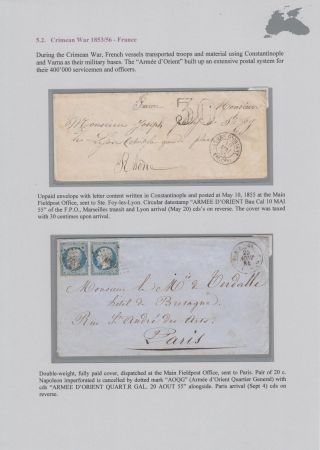 5.2. Crimean War 1853/56 - France
During the Crimean War, French vessels transported troops and material using Constantinople
and Varna as their military bases. The "Armée d'Orient" built up an extensive postal system for
their 400'000 servicemen and officers.
Monsieur
Monsieur Joseph
Lyon
Rhône
Unpaid envelope with letter content written in Constantinople and posted at May 10, 1855 at the Main
Fieldpost Office, sent to Ste. Foy-les-Lyon. Circular datestamp "ARMEE D'ORIENT Bau Cal 10 MAI
55" of the F.P.O., Marseilles transit and Lyon arrival (May 20) cds's on reverse. The cover was taxed
with 30 centimes upon arrival.
Monsieur le Mis de Verdalle
hôtel de Bretagne,
Rue St André des arts
Paris
Double-weight, fully paid cover, dispatched at the Main Fieldpost Office, sent to Paris. Pair of 20 c.
Napoleon imperforated is cancelled by dotted mark "AOQG" (Armée d'Orient Quartier General) with
cds "ARMEE D'ORIENT QUART.R GAL. 20 AOUT 55" alongside. Paris arrival (Sept 4) cds on
reverse.